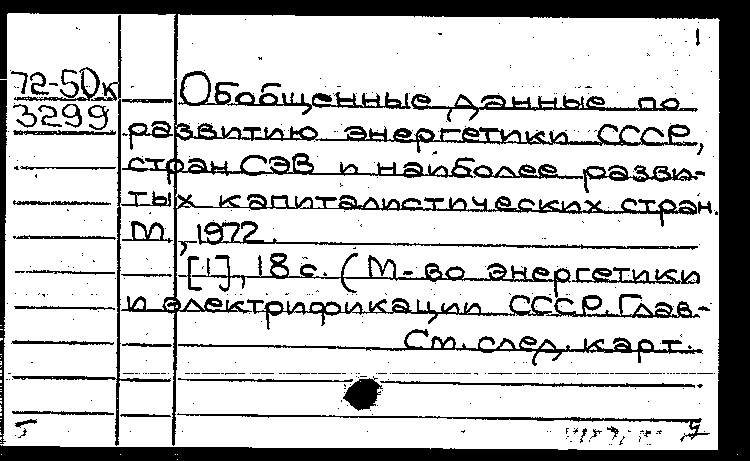 1
72-50к
3299
Обобщенные данные по
развитию энергетики СССР,
стран СЭВ и наиболее разви-
тых капиталистических стран.
М., 1972.
[1], 18 с. (М-во энергетики
и электрификации СССР. Глав-
См. след. карт.